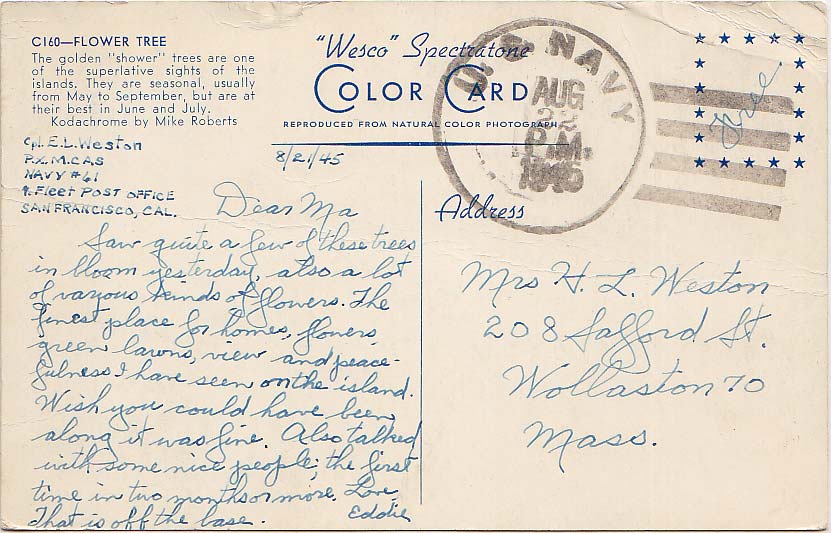 C160—FLOWER TREE
The golden "shower" trees are one
of the superlative sights of the
islands. They are seasonal, usually
from May to September, but are at
their best in June and July.
Kodachrome by Mike Roberts
"Wesco" Spectratone
COLOR CARD
REPRODUCED FROM NATURAL COLOR PHOTOGRAPH
U.S. NAVY
AUG
22
P.M.
1945
Free
Cpl. E.L. Weston
P.X. M.C.A.S
NAVY #61
℅ FLEET POST OFFICE
SAN FRANCISCO, CAL.
8/21/45
Dear Ma
Saw quite a few of these trees
in bloom yesterday, also a lot
of various kinds of flowers. The
finest place for homes, flowers,
green lawns, view and peace-
fulness I have seen on the island.
Wish you could have been
along it was fine. Also talked
with some nice people; the first
time in two months or more. Love,
That is off the base. Eddie
Address
Mrs H. L. Weston
208 Safford St.
Wollaston 70
Mass.